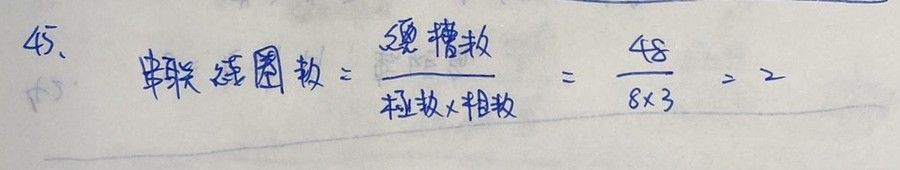 45、
串联线圈数 = 總槽数 / 極数×相数 = 48 / 8×3 = 2